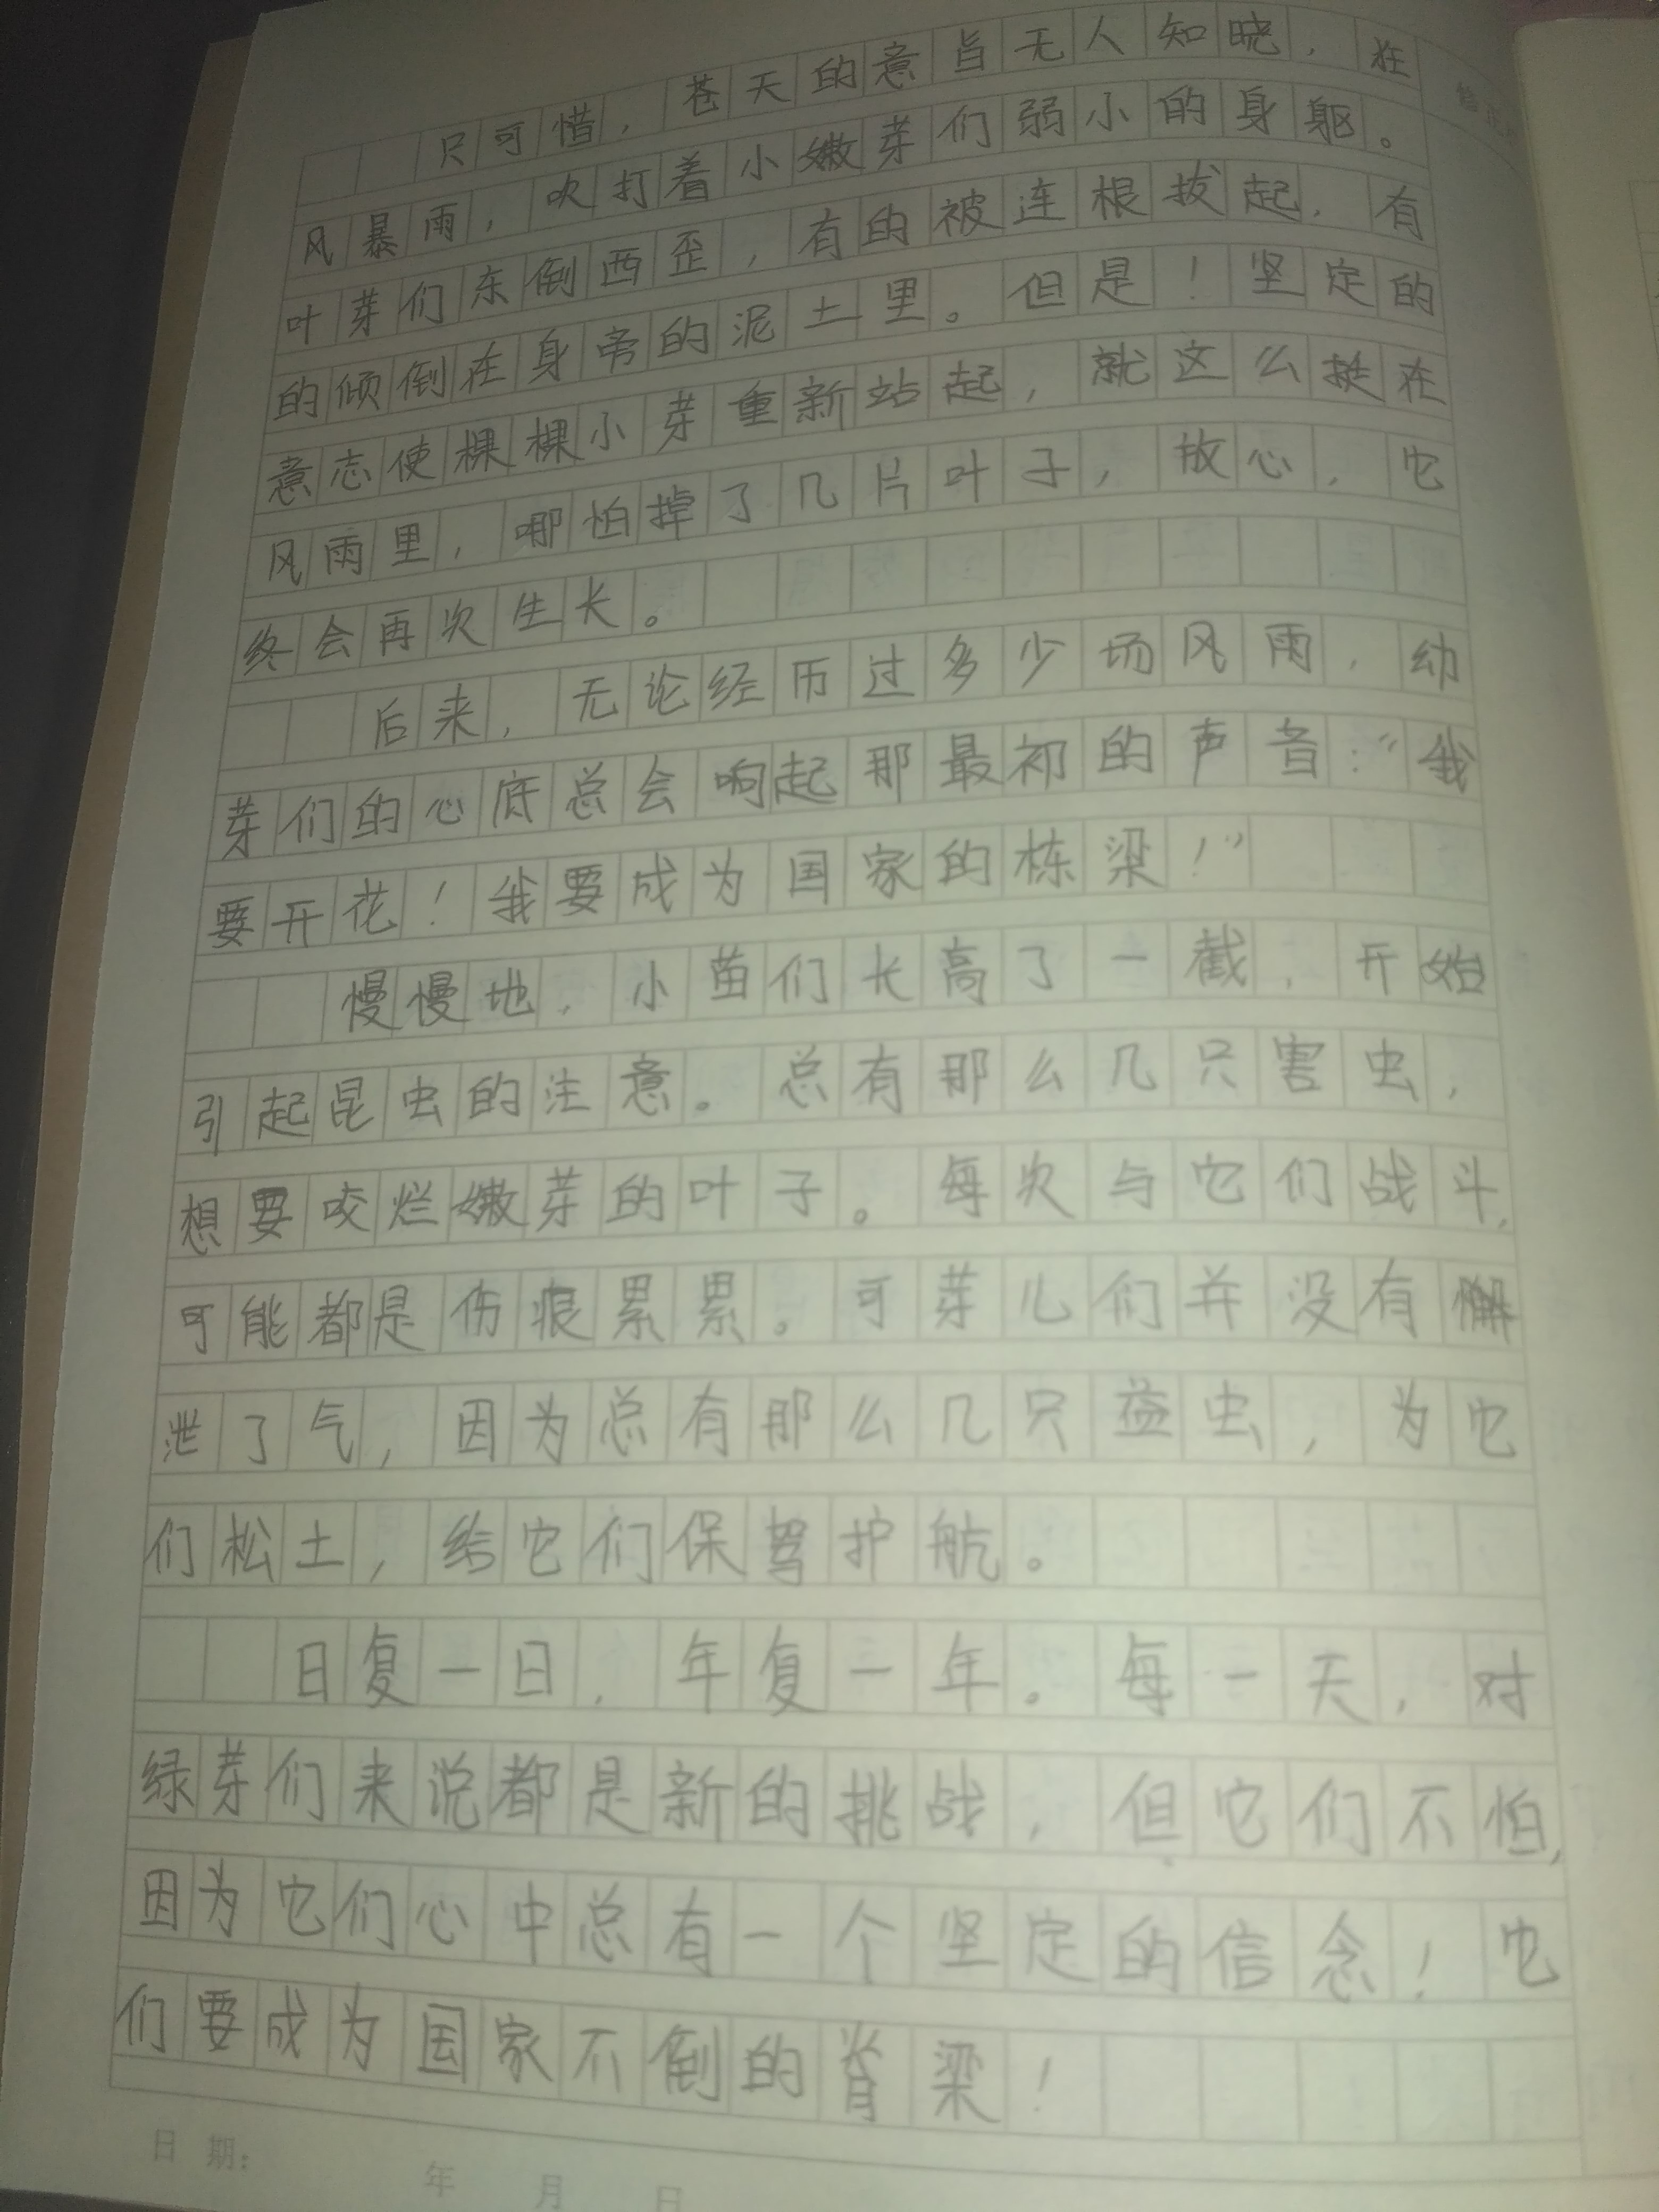 只可惜，苍天的意旨无人知晓，狂
风暴雨，吹打着小嫩芽们弱小的身躯。
叶芽们东倒西歪，有的被连根拔起，有
的倾倒在身旁的泥土里。但是！坚定的
意志使棵棵小芽重新站起，就这么挺在
风雨里，哪怕掉了几片叶子，放心，它
终会再次生长。
后来，无论经历过多少场风雨，幼
芽们的心底总会响起那最初的声音：“我
要开花！我要成为国家的栋梁！”
慢慢地，小苗们长高了一截，开始
引起昆虫的注意。总有那么几只害虫，
想要咬烂嫩芽的叶子。每次与它们战斗，
可能都是伤痕累累。可芽儿们并没有懈
泄了气，因为总有那么几只益虫，为它
们松土，给它们保驾护航。
日复一日，年复一年。每一天，对
绿芽们来说都是新的挑战，但它们不怕，
因为它们心中总有一个坚定的信念！它
们要成为国家不倒的脊梁！
日期： 年 月 日